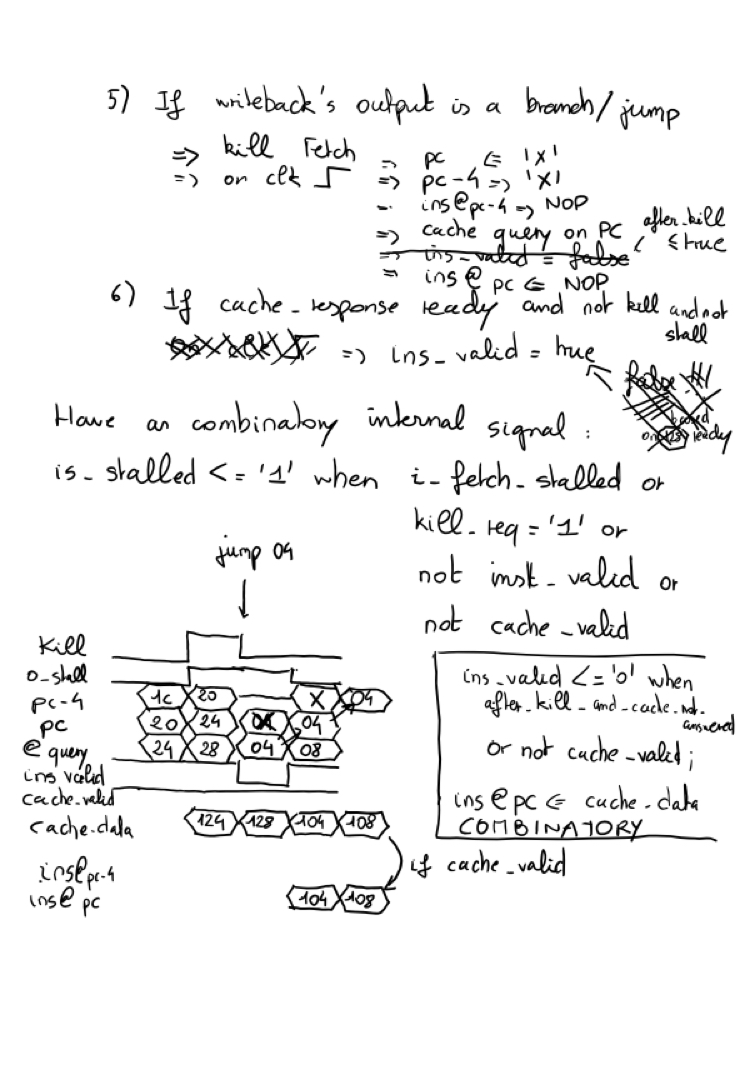 5) If writeback's output is a branch/jump
=> kill Fetch => pc <= 'X'
=> on clk => pc-4 => 'X'
=> ins@pc-4 => NOP
=> cache query on PC after_kill <= true
=> ins_valid = false
=> ins@pc <= NOP
6) If cache_response ready and not kill and not stall
=> ins_valid = true
false !!!
ready
Have an combinatory internal signal :
is_stalled <= '1' when i_fetch_stalled or
kill_req = '1' or
not inst_valid or
not cache_valid
jump 04
kill
o_stall
pc-4 1c 20 X 04
pc 20 24 04
@ query 24 28 04 08
ins valid
cache.valid
cache.data 124 128 104 108
ins@pc-4
ins@pc 104 108
if cache_valid
ins_valid <= '0' when
after_kill_and_cache_not_answered
or not cache_valid;
ins@pc <= cache.data
COMBINATORY